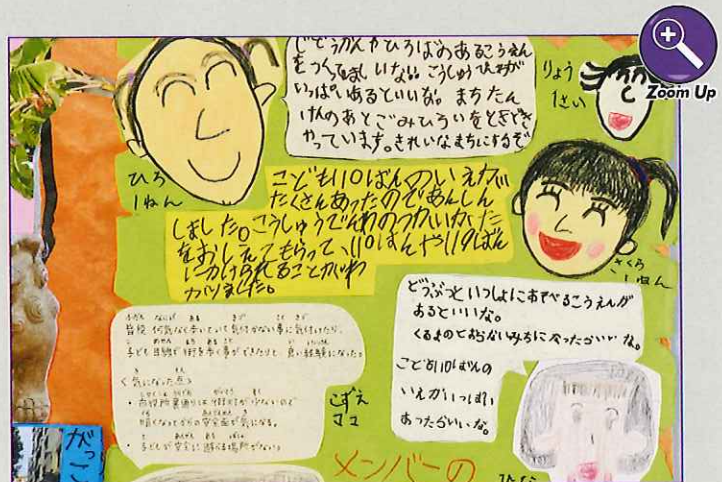 Zoom Up
じどうかんやひろばのあるこうえん
をつくってほしいな。こうしゅうひんわが
いっぱいあるといいな。まちたん
けんのあとごみひろいをときどき
やっています。きれいなまちにするぞ
りょう
1さい
ひろ
1ねん
こども110ばんのいえが
たくさんあったのであんしん
しました。こうしゅうでんわのつかいかた
をおしえてもらって、110ばんや119ばん
にかけられることがわ
かりました。
さくら
1ねん
どうぶつといっしょにあそべるこうえんが
あるといいな。
くるまのとおらないみちになったらいいな。
こども110ばんの
いえがいっぱい
あったらいいな。
普段 何気なく歩いていて気付かない事に気付けたり、
子ども目線で街を歩く事ができたりと 良い経験になった。
<気になった点>
・市役所裏通りは街灯が少ないので
暗くなってからの安全面が気になる。
・子どもが安全に遊べる場所がない。
こずえ
ママ
がっこ
メンバーの